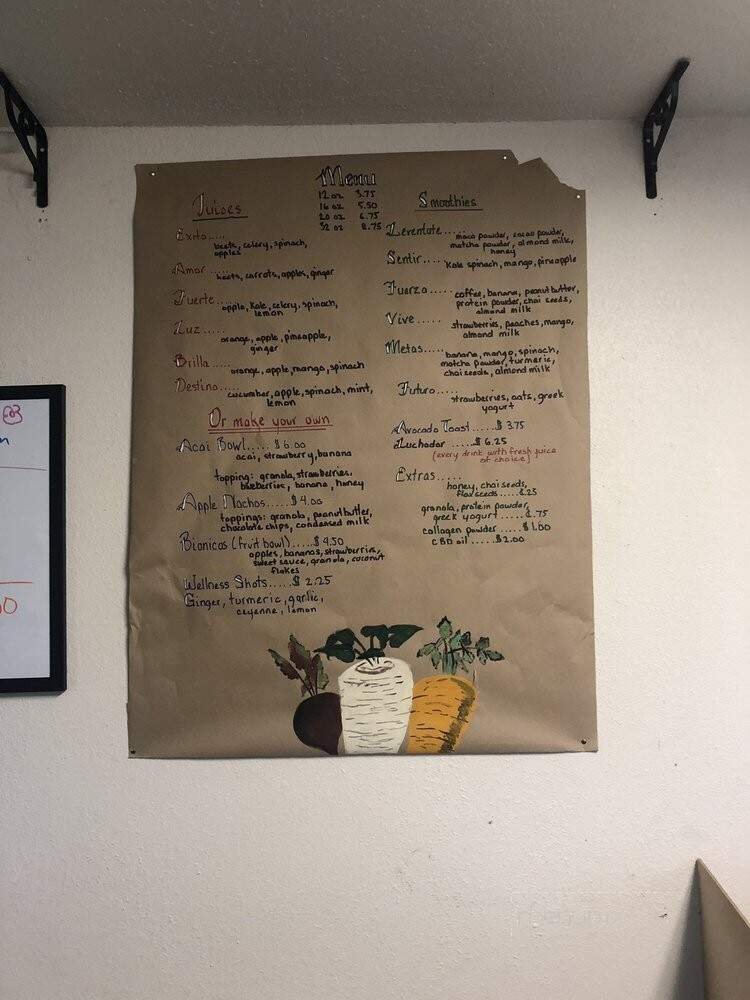 Menu
12 oz 3.75
16 oz 5.50
20 oz 6.75
32 oz 8.75
Juices
Exito....
beets, celery, spinach,
apples
Amor....
beets, carrots, apples, ginger
Fuerte....
apple, kale, celery, spinach,
lemon
Luz.....
orange, apple, pineapple,
ginger
Brilla....
orange, apple, mango, spinach
Destino.....
cucumber, apple, spinach, mint,
lemon
Or make your own
Acai Bowl.....$ 6.00
acai, strawberry, banana
topping: granola, strawberries,
blueberries, banana, honey
Apple Nachos.....$4.00
toppings: granola, peanutbutter,
chocolate chips, condensed milk
Bionicos (fruit bowl).....$4.50
apples, bananas, strawberries,
sweet sauce, granola, coconut
flakes
Wellness Shots.....$ 2.25
Ginger, turmeric, garlic,
cayenne, lemon
Smoothies
Levantate.....
maca powder, cacao powder,
matcha powder, almond milk,
honey
Sentir.....
kale spinach, mango, pineapple
Fuerza.....
coffee, banana, peanutbutter,
protein powder, chai seeds,
almond milk
Vive.....
strawberries, peaches, mango,
almond milk
Metas.....
banana, mango, spinach,
matcha powder, turmeric,
chai seeds, almond milk
Futuro.....
strawberries, oats, greek
yogurt
Avocado Toast.....$ 3.75
Luchador.....$ 6.25
(every drink with fresh juice
of choice)
Extras.....
honey, chai seeds,
flax seeds.....¢.25
granola, protein powder,
greek yogurt.....¢.75
collagen powder.....$1.00
CBD oil.....$2.00